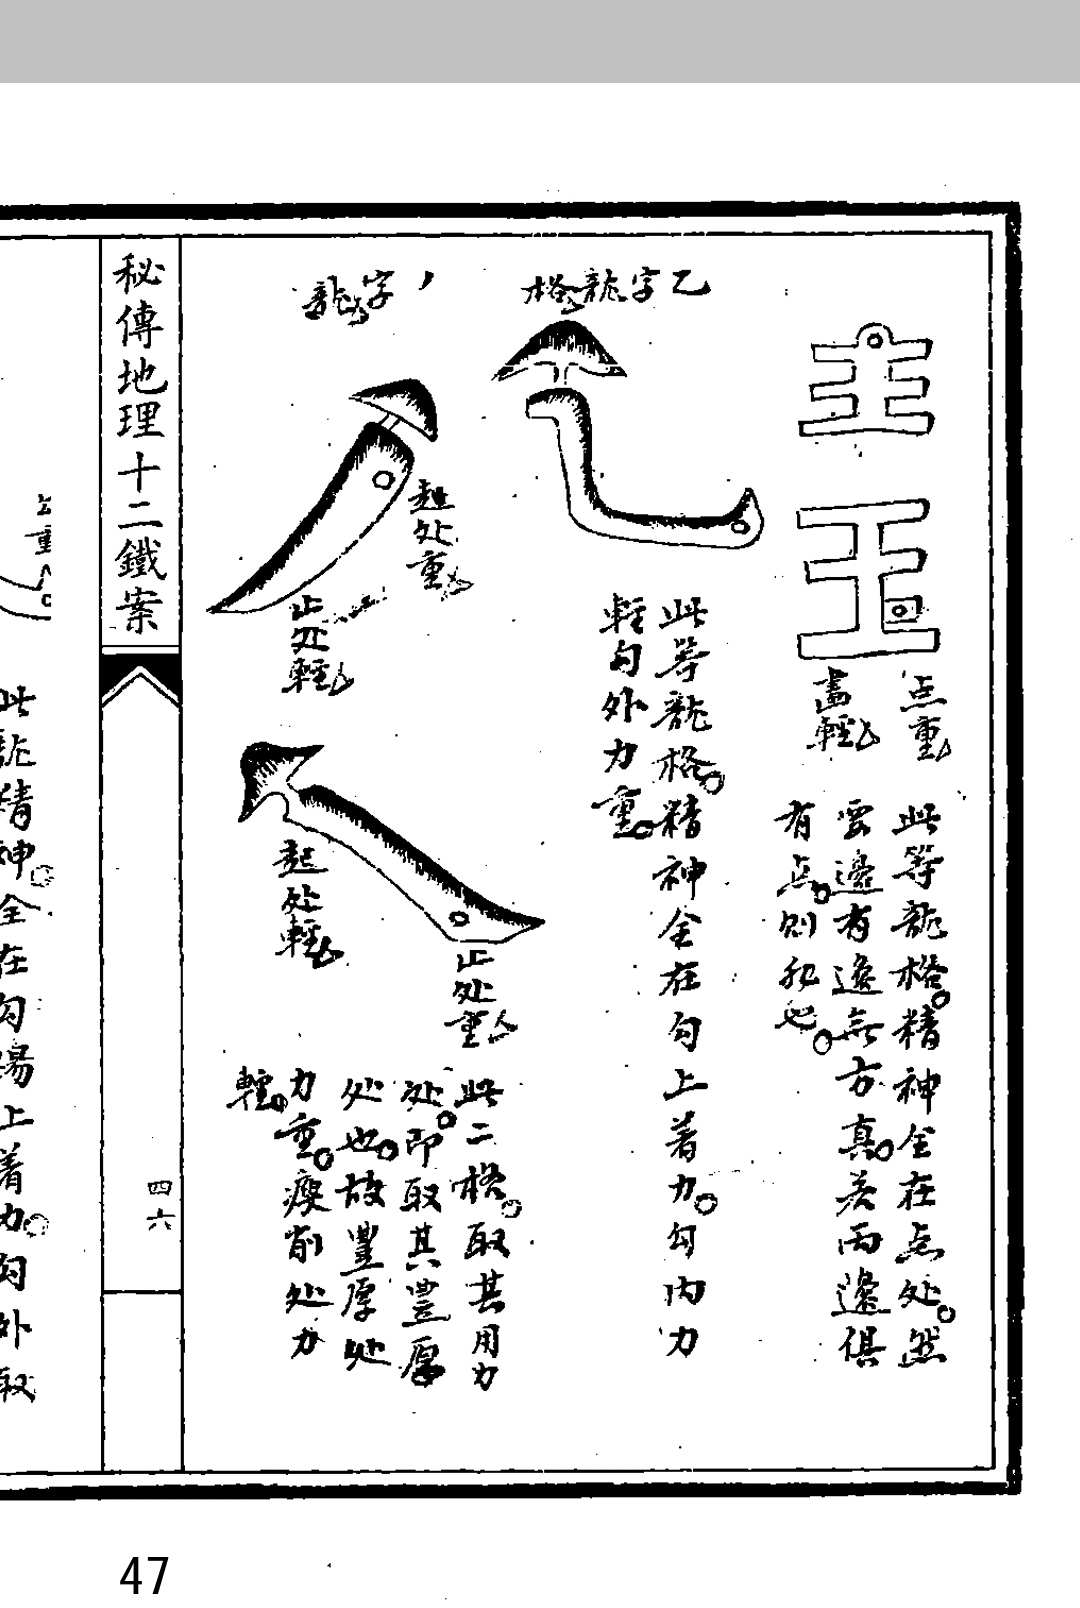 点重
畫輕
此等龍格精神全在点处然
要邊有邊無方真若兩邊俱
有点則非也
乙字龍格
此等龍格精神全在勾上着力勾内力
輕勾外力重
丿字龍
起处重
止处輕
起处輕
止处重
此二格取其用力
处即取其豐厚
处也故豐厚处
力重瘦削处力
輕
秘傳地理十二鐵案
四六
此龍精神全在勾
上着力勾外取
47